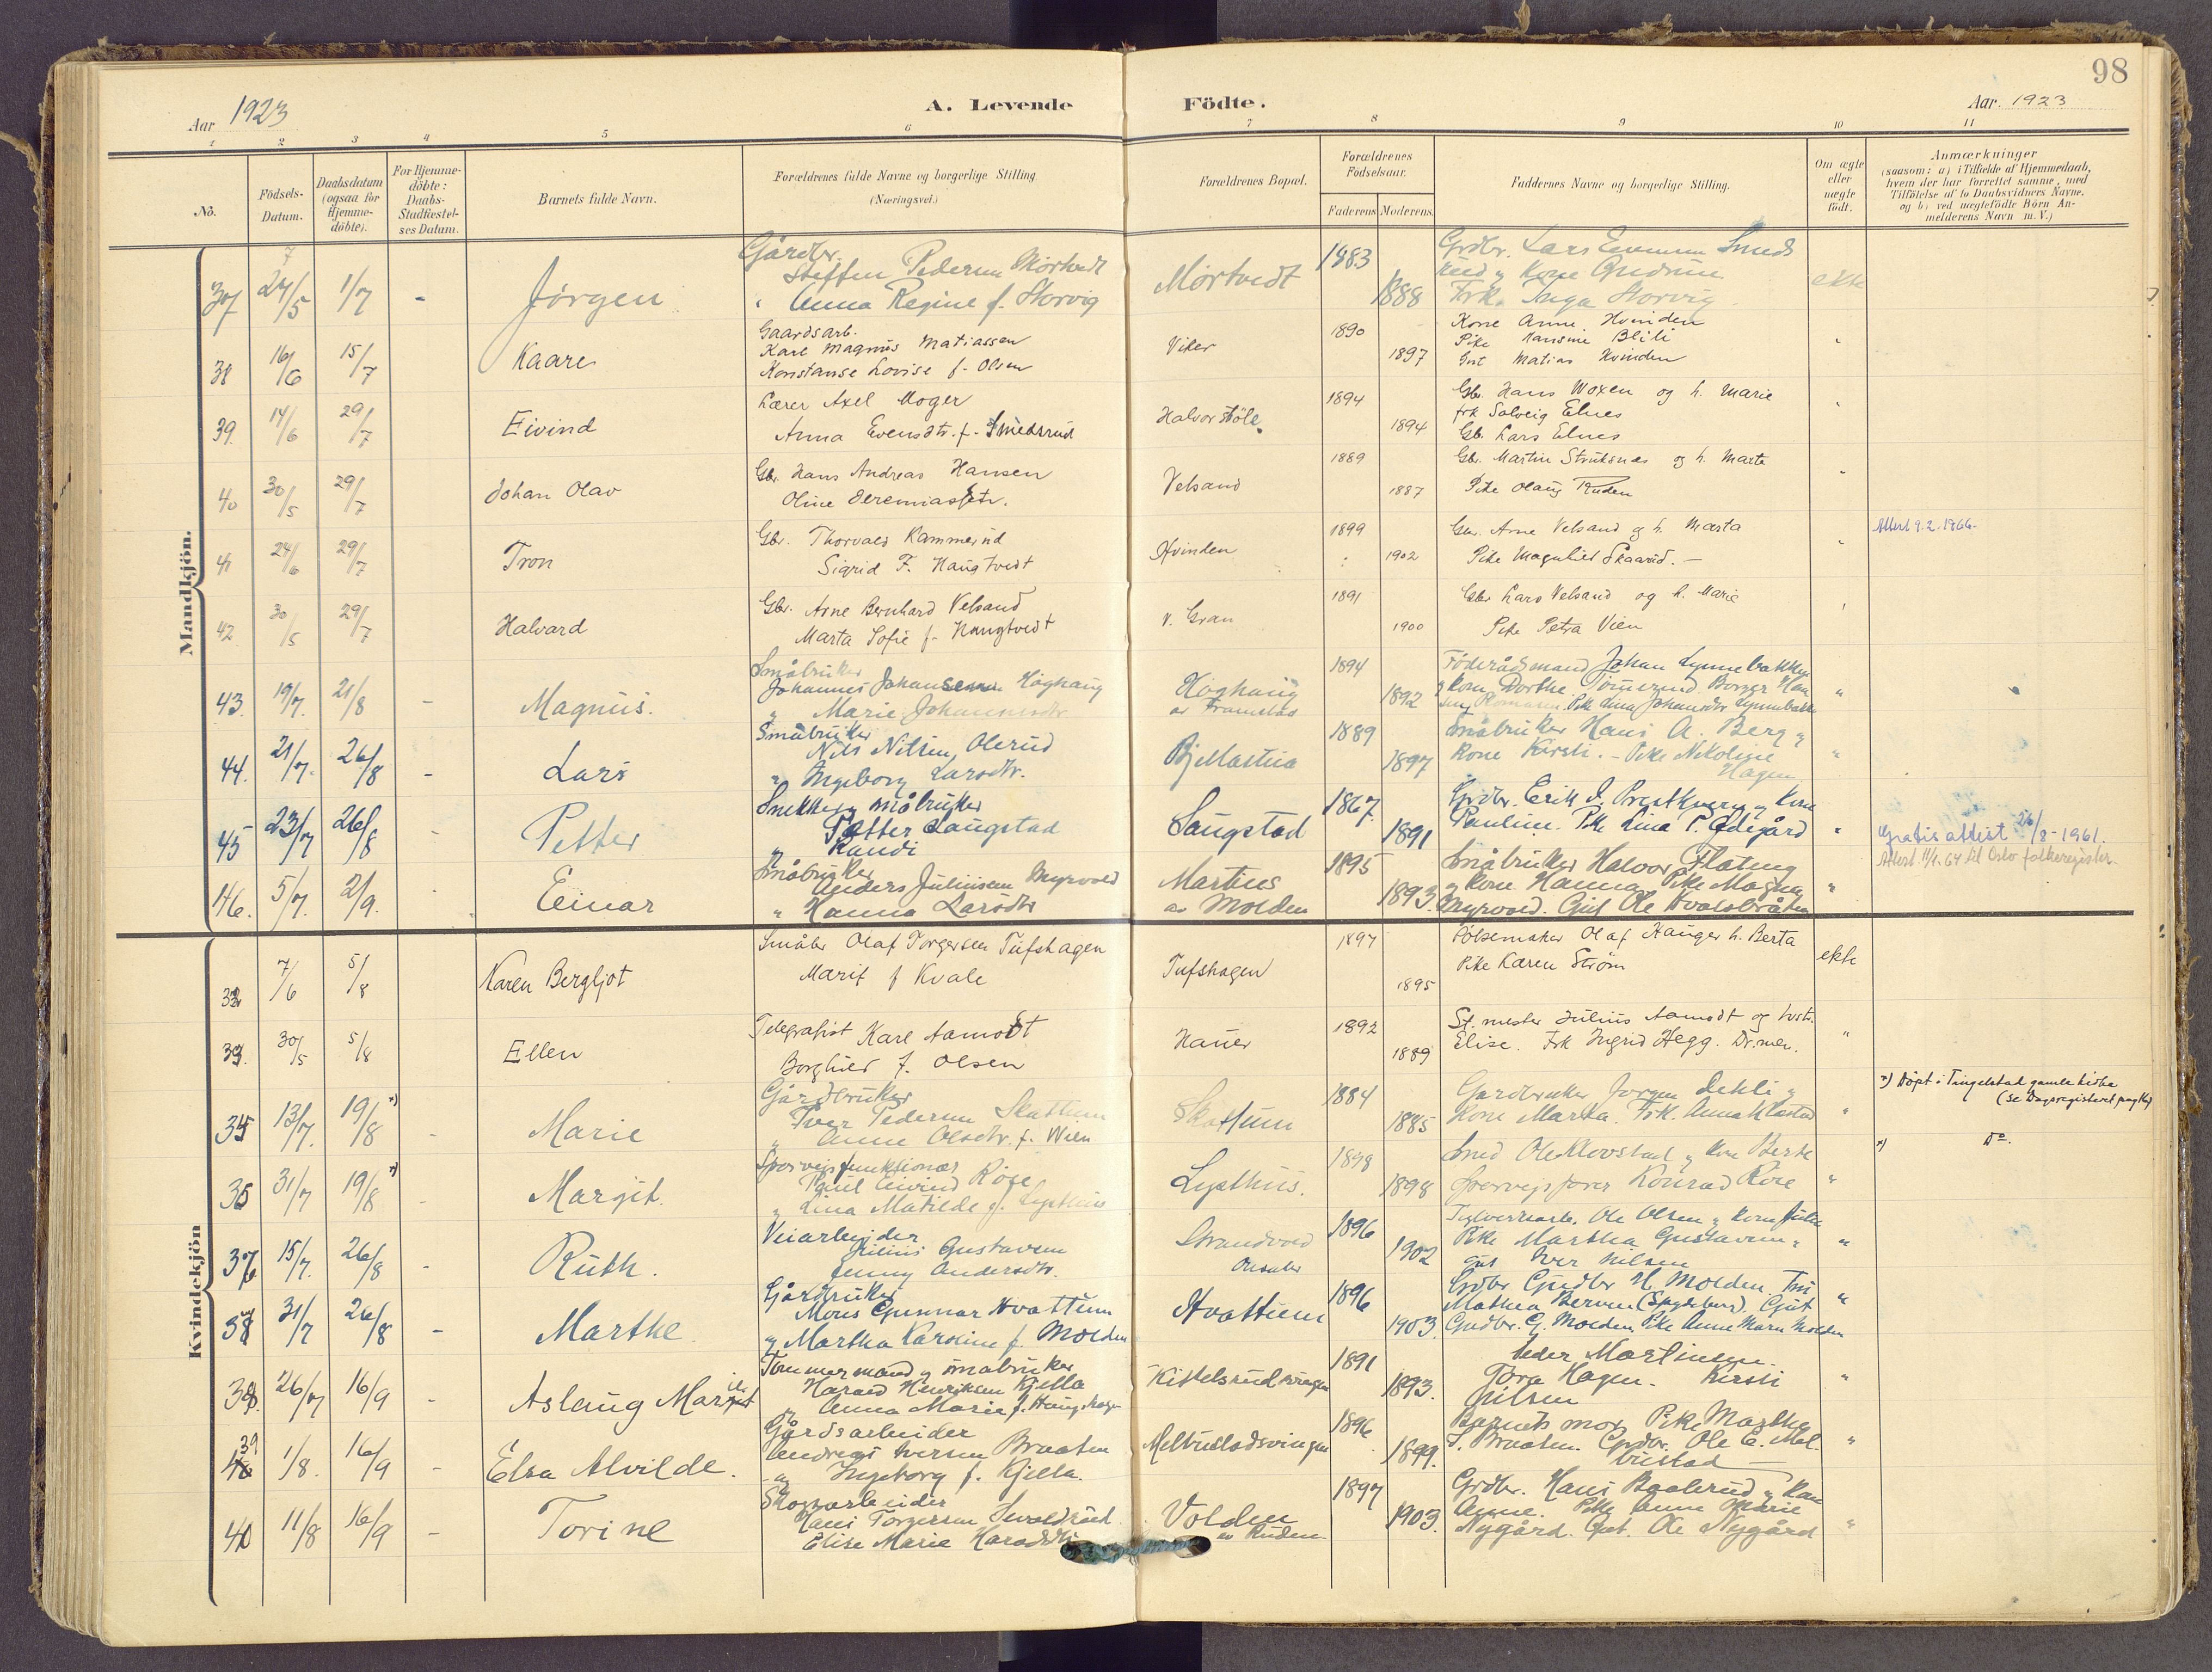 98
Aar 1923
A. Levende Födte.
Aar 1923
1 2 3 4 5 6 7 8 9 10 11
No.
Födsels-
Datum.
Daabsdatum
(ogsaa for
Hjemme-
döbte).
For Hjemme-
döbte:
Daabs-
Stadfæstel-
ses Datum.
Barnets fulde Navn.
Forældrenes fulde Navne og borgerlige Stilling
(Næringsvei.)
Forældrenes Bopæl.
Forældrenes
Födselsaar.
Faderens Moderens
Faddernes Navne og borgerlige Stilling.
Om ægte
eller
uægte
födt.
Anmærkninger
(saasom: a) i Tilfælde af Hjemmedaab,
hvem der har forrettet samme, med
Tilföielse af to Daabsvidners Navne,
og b) ved uægtefödte Börn An-
melderens Navn m. V.)
Mandkjön.
37 24/5 1/7 - Jörgen
Gårdbr.
Steffen Pedersen Mörtvedt
" Anna Regine f. Horvig
Mörtvedt 1883 1888
Grdbr. Lars Smeds
rud og Kone Gudrun
Frk. Inga Horvig
ekte
38 16/6 15/7 Kaare
Gaardsarb.
Karl Magnus Matiassen
Konstanse Lovise f. Olsen
Viker 1890 1897
Kone Anne Hvinden
Pike Hansine Blili
Matias Hvinden
39. 14/6 29/7 Eivind
Lærer Axel Moger
Anna Evensdtr. f. Smedsrud
Halvorstöle 1894 1894
Gbr. Hans Woxen og h. Marie
frk Solveig Elnes
Gb. Lars Elnes
40 30/5 29/7 Johan Olav
Gbr. Hans Andreas Hansen
Oline Jeremiasdtr.
Velsand 1889 1887
Gbr. Martin Struksnæs og h. Marte
Pike Olaug Ruden
41 24/6 29/7 Tron
Gbr. Thorvald Rammerud
Sigrid F. Haugtvedt
Hvinden 1899 1902
Gbr. Arne Velsand og h. Marta
Pike Magnhild Skaarud. -
Attest 9.2.1966.
42 30/5 29/7 Halvard
Gbr. Arne Bernhard Velsand
Marta Sofie f. Haugtvedt
v. Gran 1891 1900
Gbr Lars Velsand og h. Marie
Pike Petra Vien
43. 19/7. 21/8 - Magnus.
Småbruker
Johannes Johansen Höghaug
" Marie Johannesdtr
Höghaug
av Framstad
1894 1892
Föderådsmand Johan Lynnebakken
og kone Dorthe. Borger Han
sen Pike Lina Johansdtr Lynnebakke
"
44. 21/7. 26/8 - Lars
Småbruker
Nils Nilsen Olerud
" Ingeborg Larsdtr.
Bjellastua 1889 1897
Småbruker Hans A. Berg og
Kone Kirsti. - Pike Nikoline
Hagen
"
45 23/7 26/8 - Petter
Snekker og småbruker
Petter Saugstad
" Randi
Saugstad 1867. 1891
Grdbr. Erik I. Prestkvern og Kone
Pauline. Pike Lina P. Ödegård
"
Gratis attest 26/8-1961.
Attest 11/1.64 til Oslo folkeregister.
46. 5/7. 2/9. Einar
Småbruker
Anders Juliusen Myrvold
" Hanna Larsdtr
Martins
av Molden
1895 1893.
Småbruker Halvor Flatung
og kone Hanna. Pike Magna
Myrvold. Gut Ole Hvalsbråten
"
Kvindekjön
32 7/6 5/8 Karen Bergljot
Småbr Olaf Torgersen Tufshagen
Marit f Kvale
Tufshagen 1897 1895
Pölsemaker Olaf Hauger h. Berta
Pike Karen Ström
ekte
33. 30/5 5/8 Ellen
Telegrafist Karl Aamodt
Borghild f. Olsen
Hauer 1892 1889
St.mester Julius Aamodt og hustr.
Elise. Frk Ingrid Hegg. Dr.men.
"
34 13/7. 19/8 *) - Marie
Gårdbruker
Iver Pedersen Skattum
" Anne Olsdtr. f. Wien
Skattum 1884 1885
Gardbruker Jörgen Dehli og
Kone Marta. Frk. Anna Klæstad
"
*) Döpt i Tingelstad gamle kirke
(se Dagsregisteret pag 116)
35 31/7 19/8 *) - Margit.
Sporveisfunksionær
Paul Eivind Röise
" Lina Matilde f. Lysthus
Lysthus. 1898 1898
Smed Ole Klovstad og Kone Berte
Sporveisfører Konrad Röise
"
*) Do.
36 15/7. 26/8 - Ruth.
Veiarbeider
Julius Gustavsen
Jenny Andersdtr.
Strandvold
1896 1902
Teglverksarb. Ole Olsen og kone Julie
Pike Martha Gustavsen og
gut Iver Nilsen
"
37 31/7 26/8 - Marthe
Gårdbruker
Mons Gunnar Hvattum
og Martha Karoline f. Molden
Hvattum 1896 1903.
Grdbr Gudbr H. Molden. Frk
Mathea Berven (Spydeberg). Gut
Gudbr. G. Molden. Pike Anne Marie Molden
"
38. 26/7 16/9 - Aslaug Marit
Tommermand og småbruker
Harald Henriksen Kjella
" Anna Marie f. Haugshagen
Kittelsrudsvingen 1891 1893.
Peder Martinsen.
Tora Hagen. Kirsti
Nilsen
"
39 1/8. 16/9 - Elsa Alvilde.
Gårdsarbeider
Andreas Iversen Braaten
og Ingeborg f. Kjella.
Melbustadsvingen 1896 1899.
Barnets mor. Pike Martha
I. Braaten. Grdbr. Ole E. Mel
bustad
"
40 11/8 16/9 - Torine
Skogsarbeider
Hans Torgersen Sevaldrud
Elise Marie Haralsdtr
Volden
av Ruden
1897 1903.
Grdbr. Hans Paalerud og Kone
Anne. Pike Anne Marie
Nygård. Gut. Ole Nygård
"